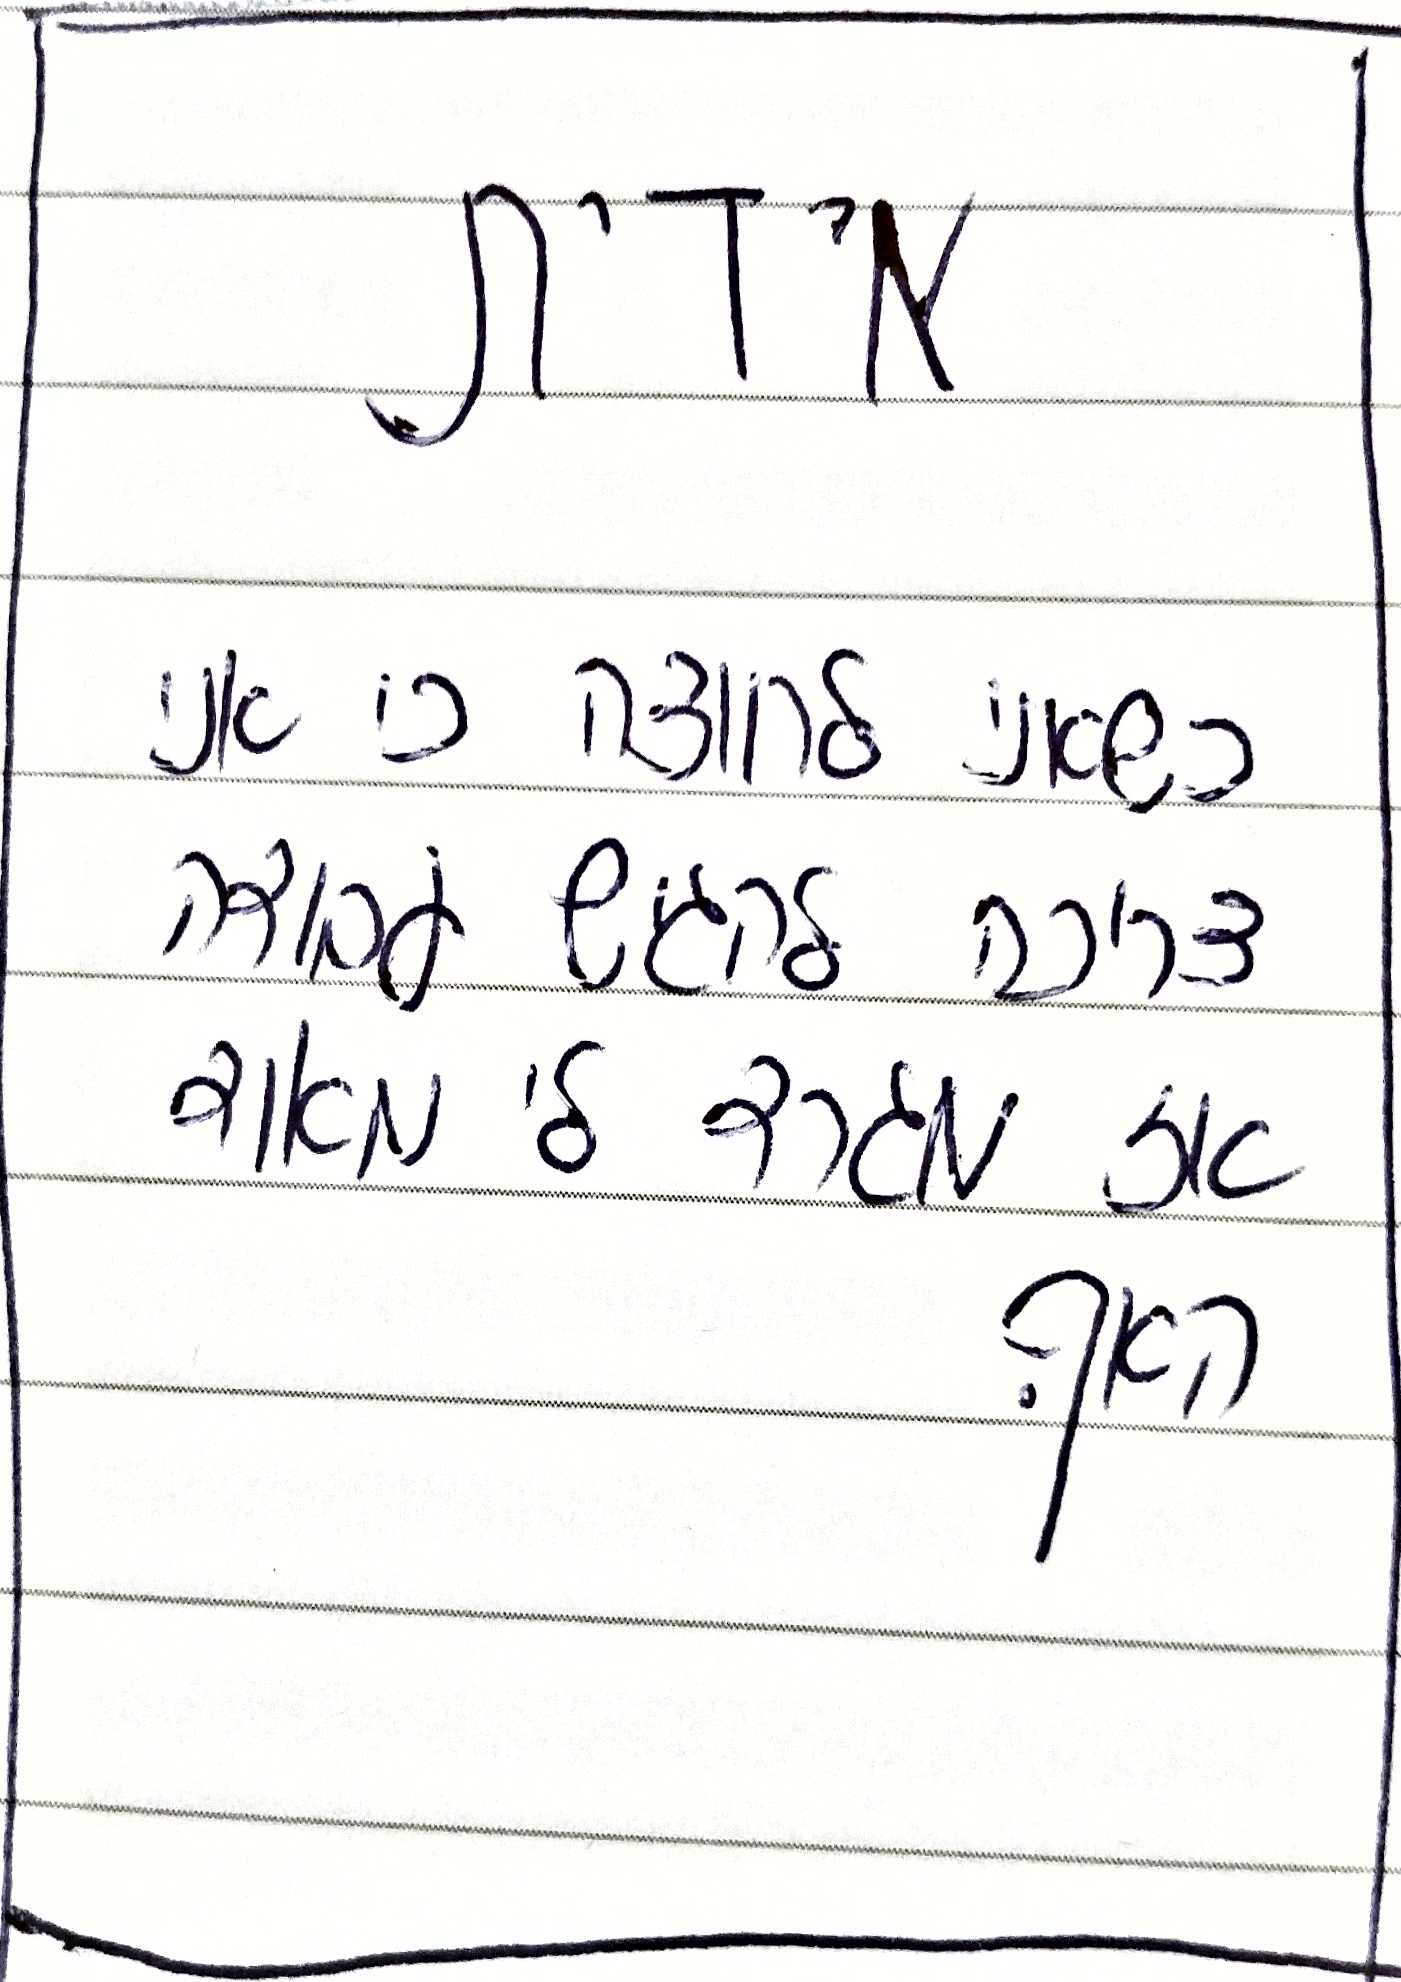 אידית
כשאני לחוצה כי אני
צריכה להגיש עבודה
אז מגרד לי מאוד
האף.